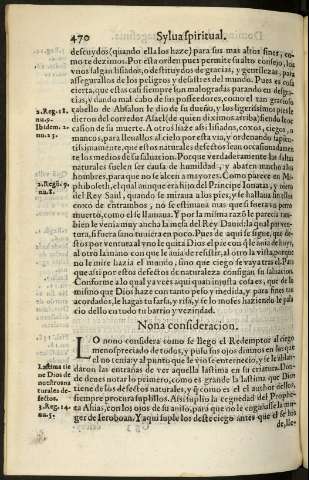 470 Sylua spiritual.
descuydos (quando ella los haze) para sus mas altos fines, co-
mo te dezimos. Por esta orden pues permite su alto consejo, los
vnos salgan lisiados, o destituydos de gracias, y gentilezas, para
assegurallos de los peligros y desastres del mundo. Pues es cosa
cierta, que estas casi siempre son malogradas parando en desgra-
cias, y dando mal cabo de sus posseedores, como el tan gracioso
cabello de Absalon le dio de su dueño, y los ligerissimos pies le
dieron del corredor Asael (de quien diximos arriba) siendo le oc
casion de su muerte. A otros haze assi lisiados, coxos, ciegos, o
mancos, para lleuallos al cielo por esta via, y ordenando sapiẽ-
tissimamente, que estos naturales defectos sean occasion damen
te los medios de su saluacion. Porque verdaderamente las faltas
naturales suelen ser causa de humildad, y abaten mucho a los
hombres, para que no se alcen a mayores. Como parece en Mi-
phiboseth, el qual aunque era hijo del Principe Ionatas, y nieto
del Rey Saul, quando se miraua a los pies, y se hallaua lisiado y
coxo de entrambos, no se estimaua mas que si fuera vn perro
muerto, como el se llamaua. Y por la misma razõ le parecia tam-
bien le venia muy ancha la mesa del Rey Dauid: la qual por ven-
tura, si fuera sano tuuiera en poco. Pues de aqui se sigue, que de
estos por ventura al vno le quita Dios el pie con q̃ le auia de huyr,
al otro la mano con que le auia de resistir, al otro la vista, porque
no le mire hazia el mundo, sino que ciego se vaya tras el. Para
que assi por estos defectos de naturaleza consigan su saluacion.
Conforme a lo qual ya ves aqui quan injusta cosa es, que de lo
mismo que Dios haze con tanto peso y medida, y para fines tan
acordados, le hagas tu farsa, y risa, y se lo mofes haziendo le pala
cio dello en todo tu barrio y vezindad.
Nona consideracion.
LO nono considera como se llego el Redemptor al ciego
menospreciado de todos, y puso sus ojos diuinos en los que
el no tenia: y al punto que le vio se enternecio, y se le ablan-
daron las entrañas de ver aquella lastima en su criatura. Don-
de deues notar lo primero, como es grande la lastima que Dios
tiene de los defectos naturales, y q̃ como es el el author dellos,
siempre procura suplillos. Assi suplio la ceguedad del Prophe-
ta Aias, con los ojos de su anito, para que no le engañasse la mu-
ger de Ieroboan. Y aqui suple los deste ciego antes que el se los
de, lle-
2. Reg. 18.
nu. 9.
Ibidem. 2.
nu. 23.
2. Reg. 9.
nu. 8.
Lastima tie
ne Dios de
nuestros na
turales de-
fectos.
3. Reg. 14.
nu. 5.